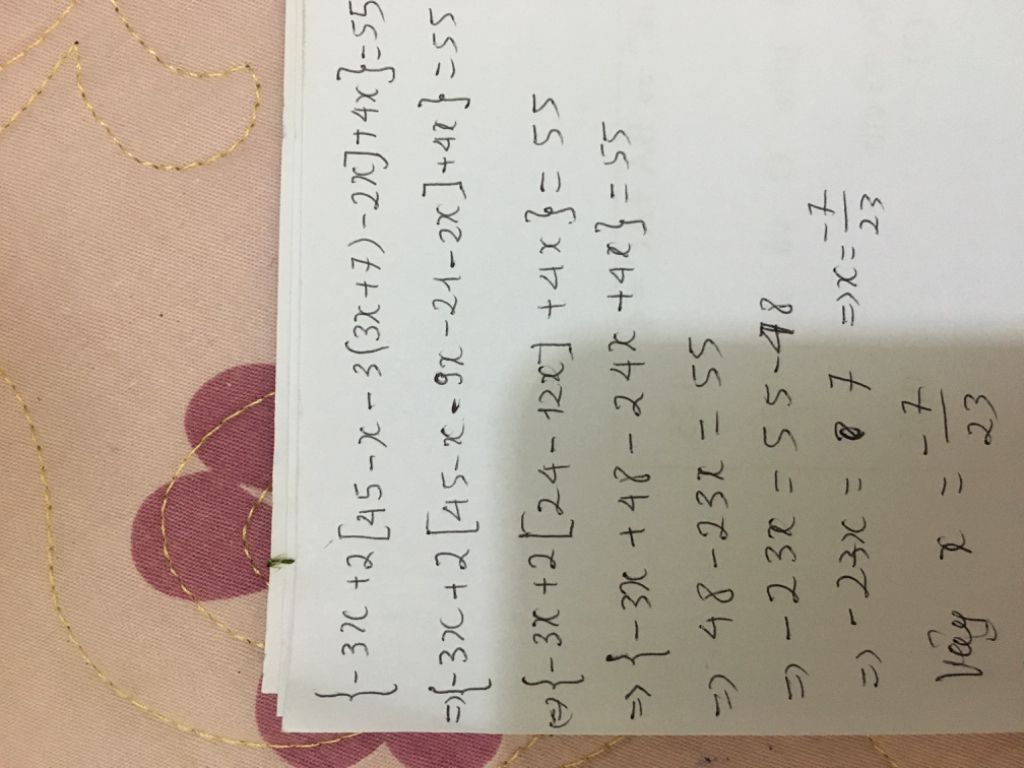 {-3x+2[45-x-3(3x+7)-2x]+4x}=55
=>{-3x+2[45-x-9x-21-2x]+4x}=55
(=){-3x+2[24-12x]+4x}=55
=>{-3x+48-24x+4x}=55
=> 48-23x=55
=> -23x=55-48
=> -23x= 7 =>x=-7/23
Vậy x = -7/23